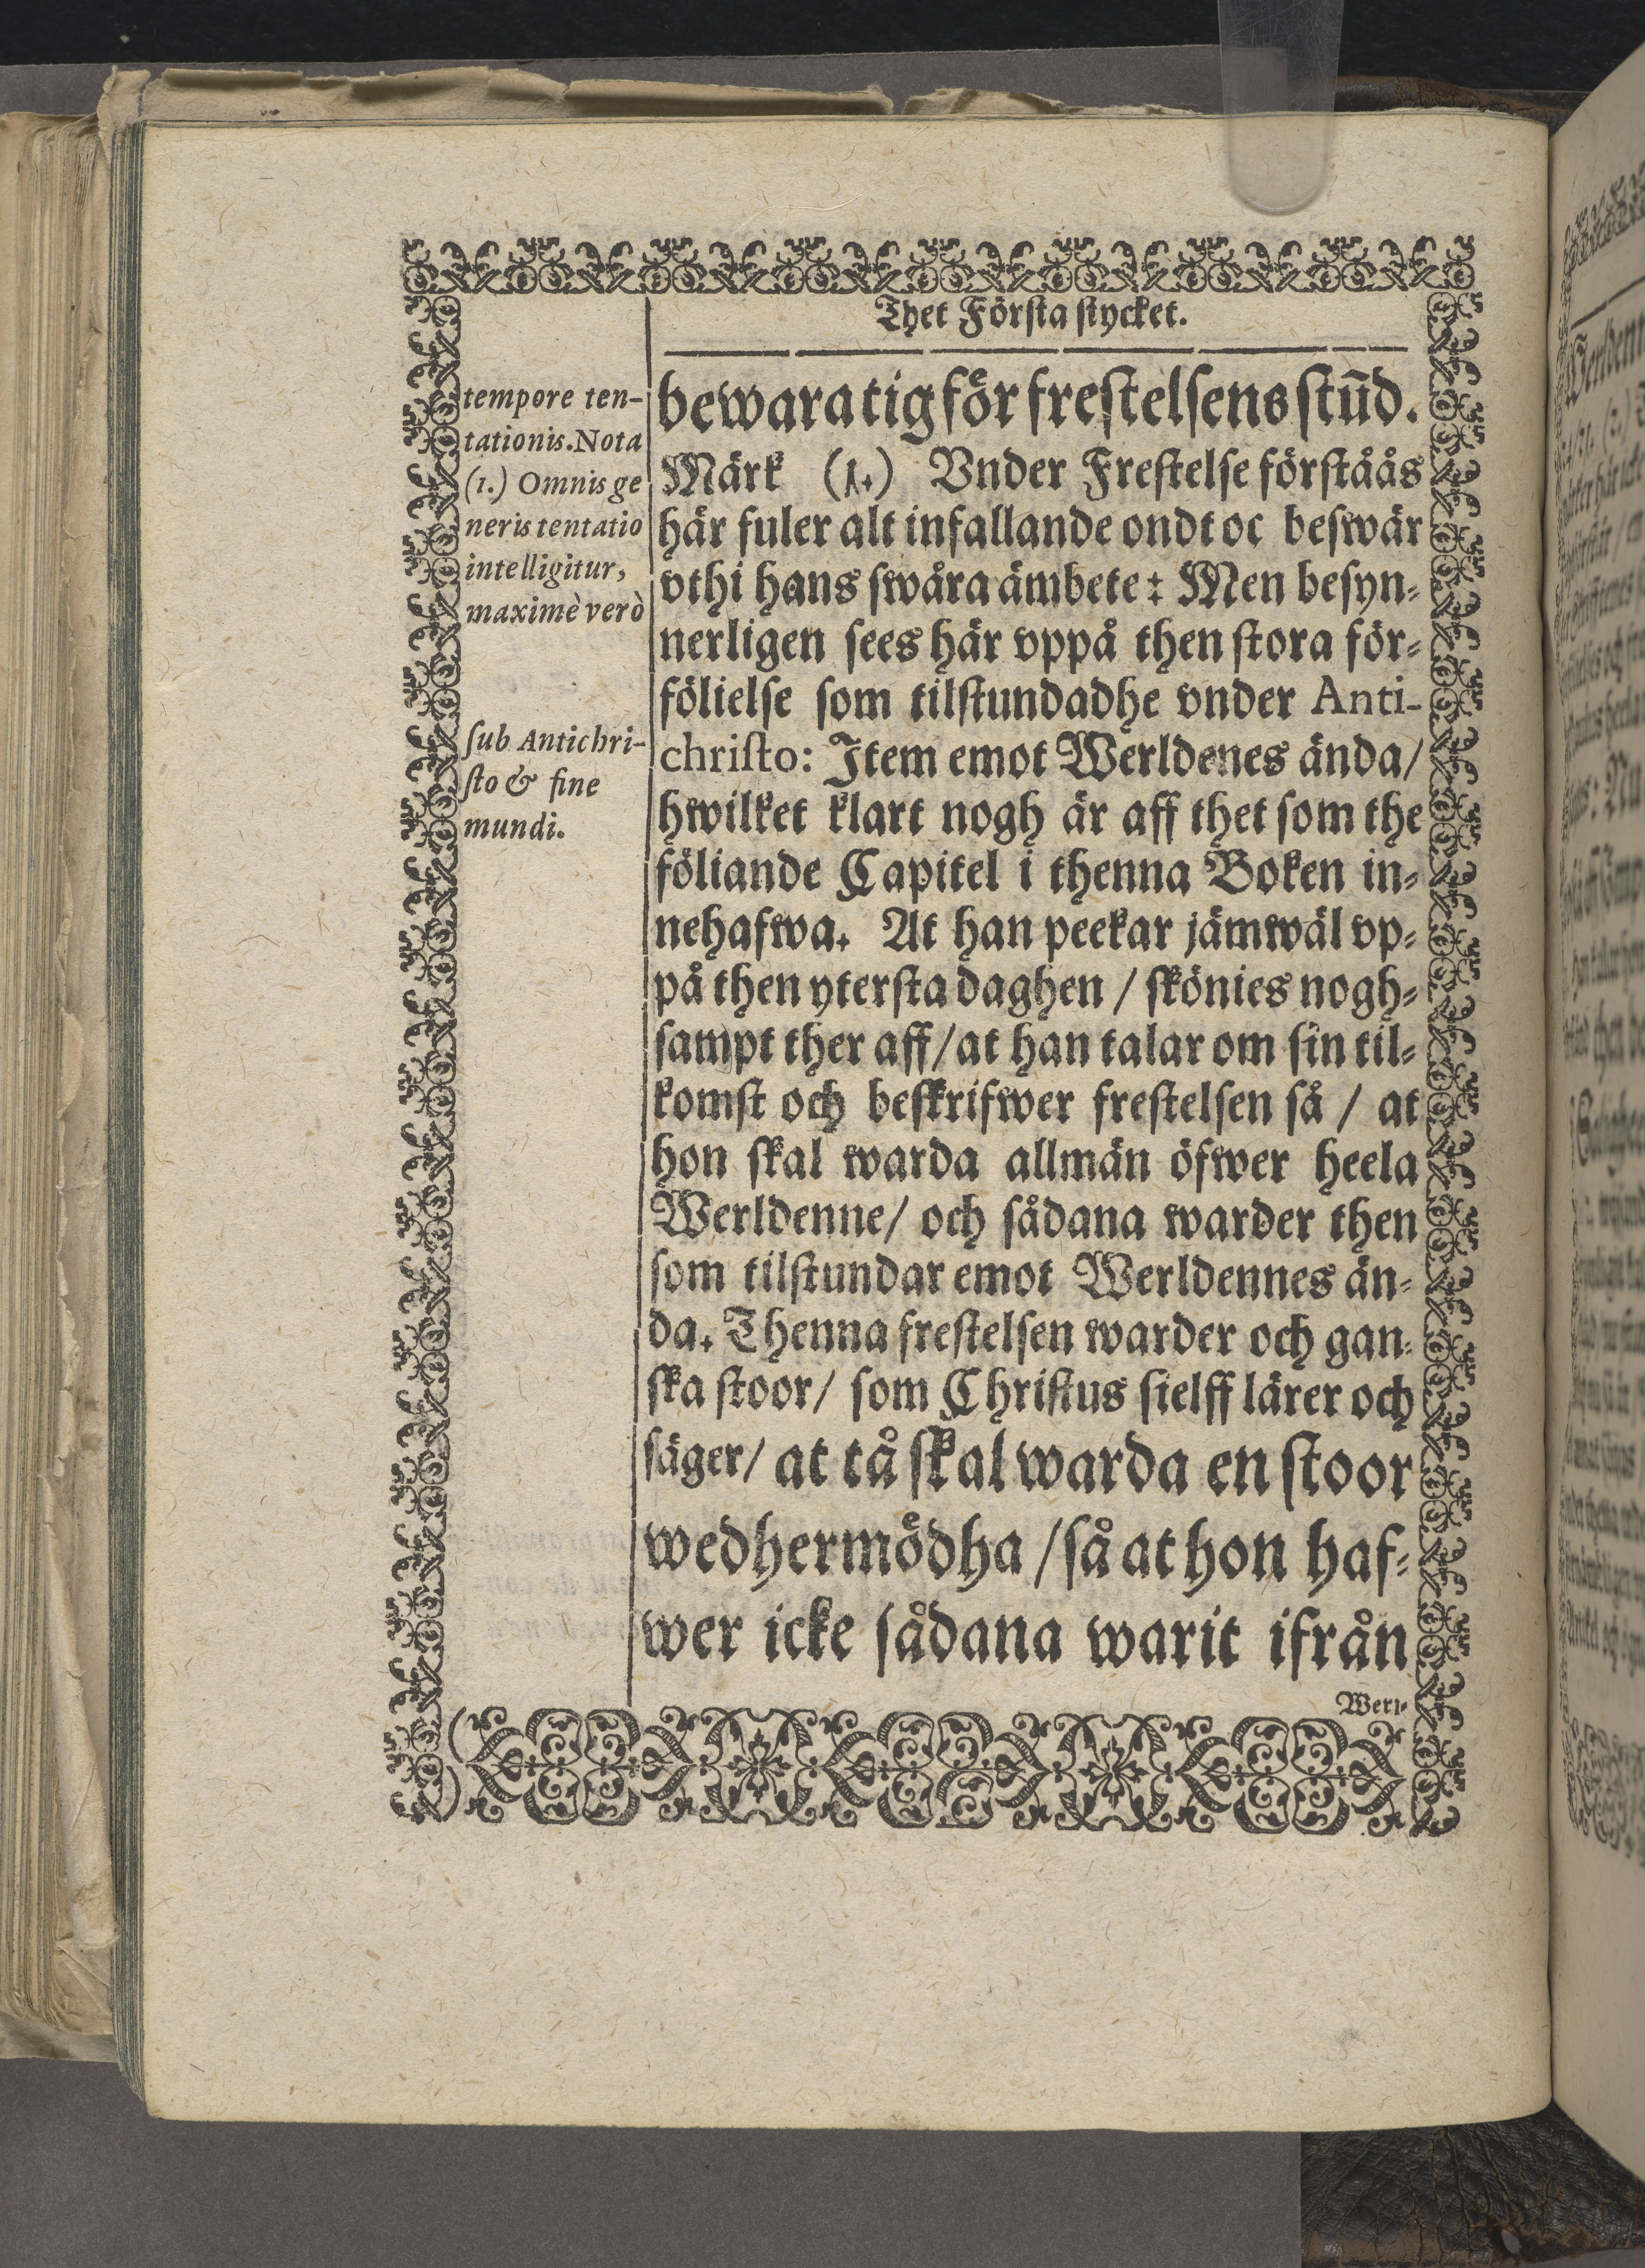 Thet Förſta ſtycket.
tempore ten-
tationis. Nota
(1.) Omnis ge
neris tentatio
intelligitur,
maximè verò
ſub Antichri-
ſto & fine
mundi.
bewara tig för freſtelſens ſtūd.
Märk (1.) Vnder Freſtelſe förſtåås
här fuler alt infallande ondt oc beſwär
vthi hans ſwåra ämbete: Men beſyn-
nerligen ſees här vppå then ſtora för-
fölielſe ſom tilſtundadhe vnder Anti-
chriſto: Item emot Werldenes ända/
hwilket klart nogh är aff thet ſom the
föliande Capitel i thenna Boken in-
nehafwa. At han peekar jämwäl vp-
på then yterſta daghen / ſkönies nogh-
ſampt ther aff/ at han talar om ſin til-
komſt och beſkrifwer freſtelſen ſå / at
hon ſkal warda allmän öfwer heela
Werldenne/ och ſådana warder then
ſom tilſtundar emot Werldennes än-
da. Thenna freſtelſen warder och gan-
ſka ſtoor/ ſom Chriſtus ſielff lärer och
ſäger/ at tå ſkal warda en ſtoor
wedhermödha / ſå at hon haf-
wer icke ſådana warit ifrån
Werl-